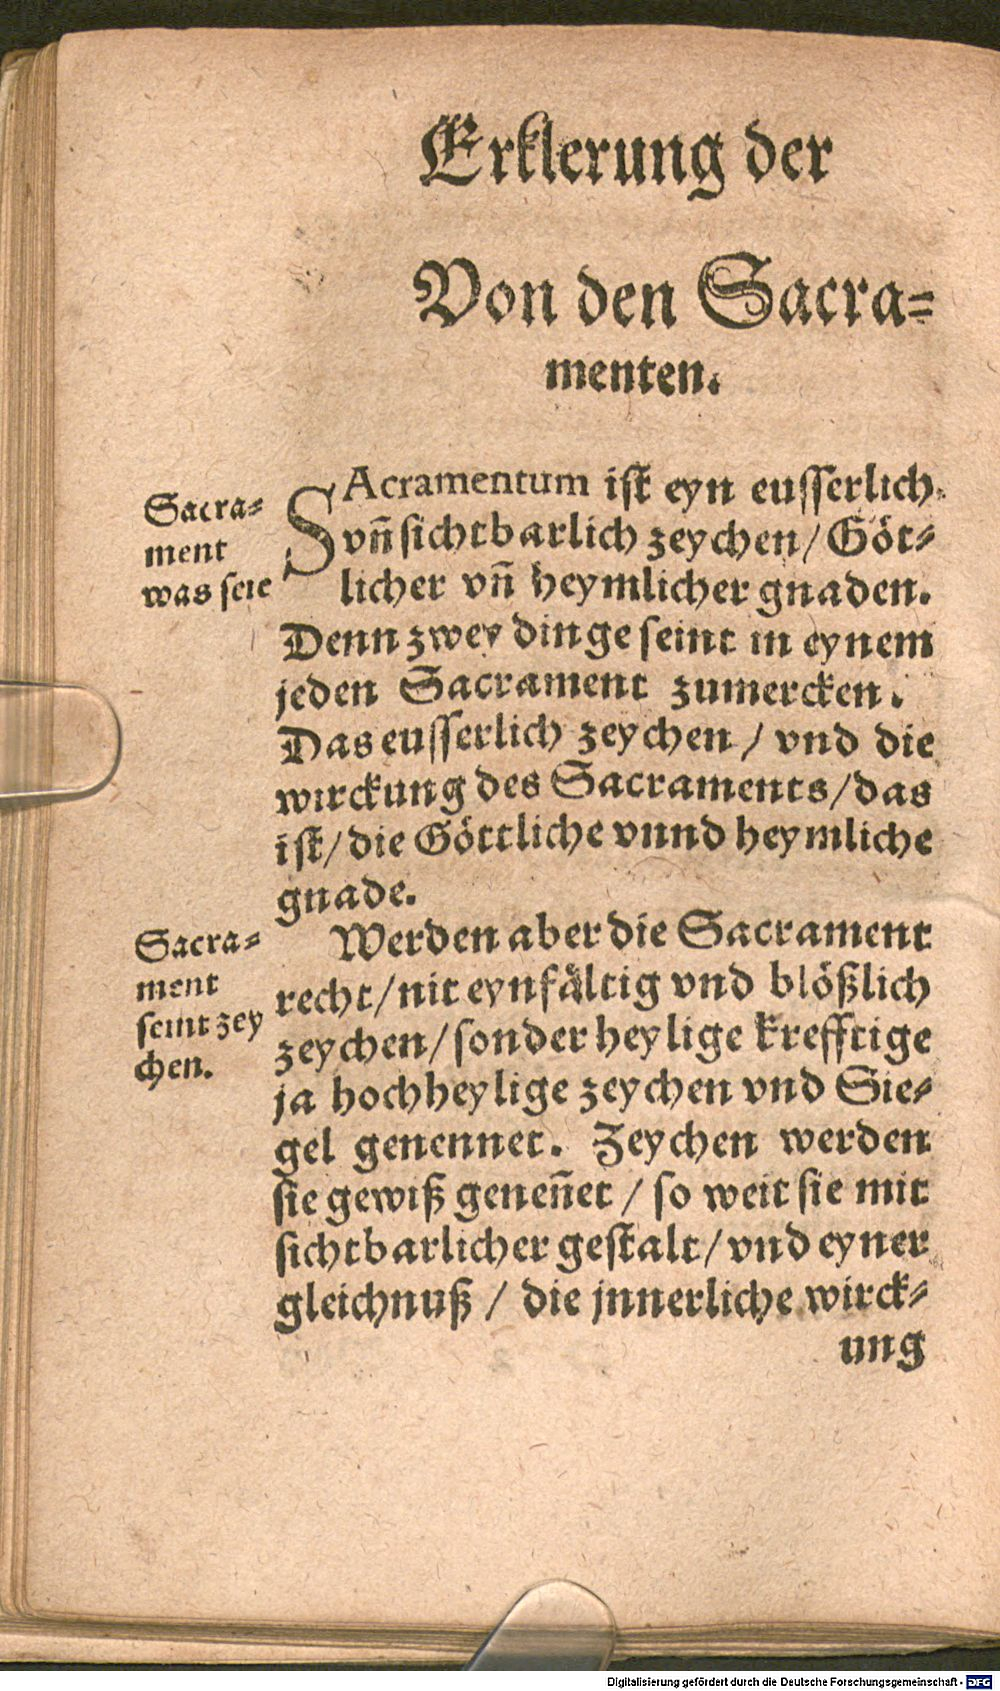 Erklerung der
Von den Sacra=
menten.
Sacra=
ment
was seie
SAcramentum ist eyn eusserlich
vñ sichtbarlich zeychen/ Göt=
licher vñ heymlicher gnaden.
Denn zwey dinge seint in eynem
jeden Sacrament zumercken.
Das eusserlich zeychen / vnd die
wirckung des Sacraments/das
ist/ die Göttliche vnnd heymliche
gnade.
Sacra=
ment
seint zey
chen.
Werden aber die Sacrament
recht/nit eynfältig vnd blößlich
zeychen/ sonder heylige krefftige
ja hochheylige zeychen vnd Sie=
gel genennet. Zeychen werden
sie gewiß geneñet / so weit sie mit
sichtbarlicher gestalt/ vnd eyner
gleichnuß / die jnnerliche wirck=
ung
Digitalisierung gefördert durch die Deutsche Forschungsgemeinschaft - DFG